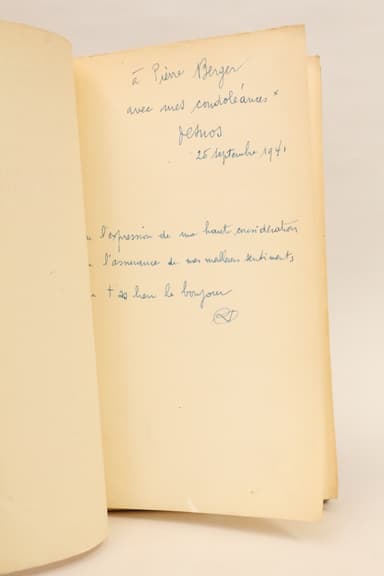 à Pierre Berger
avec mes condoléances x
Desnos
25 septembre 1941
l'expression de ma haute considération
l'assurance de mes meilleurs sentiments
+ bien le bonjour
RD